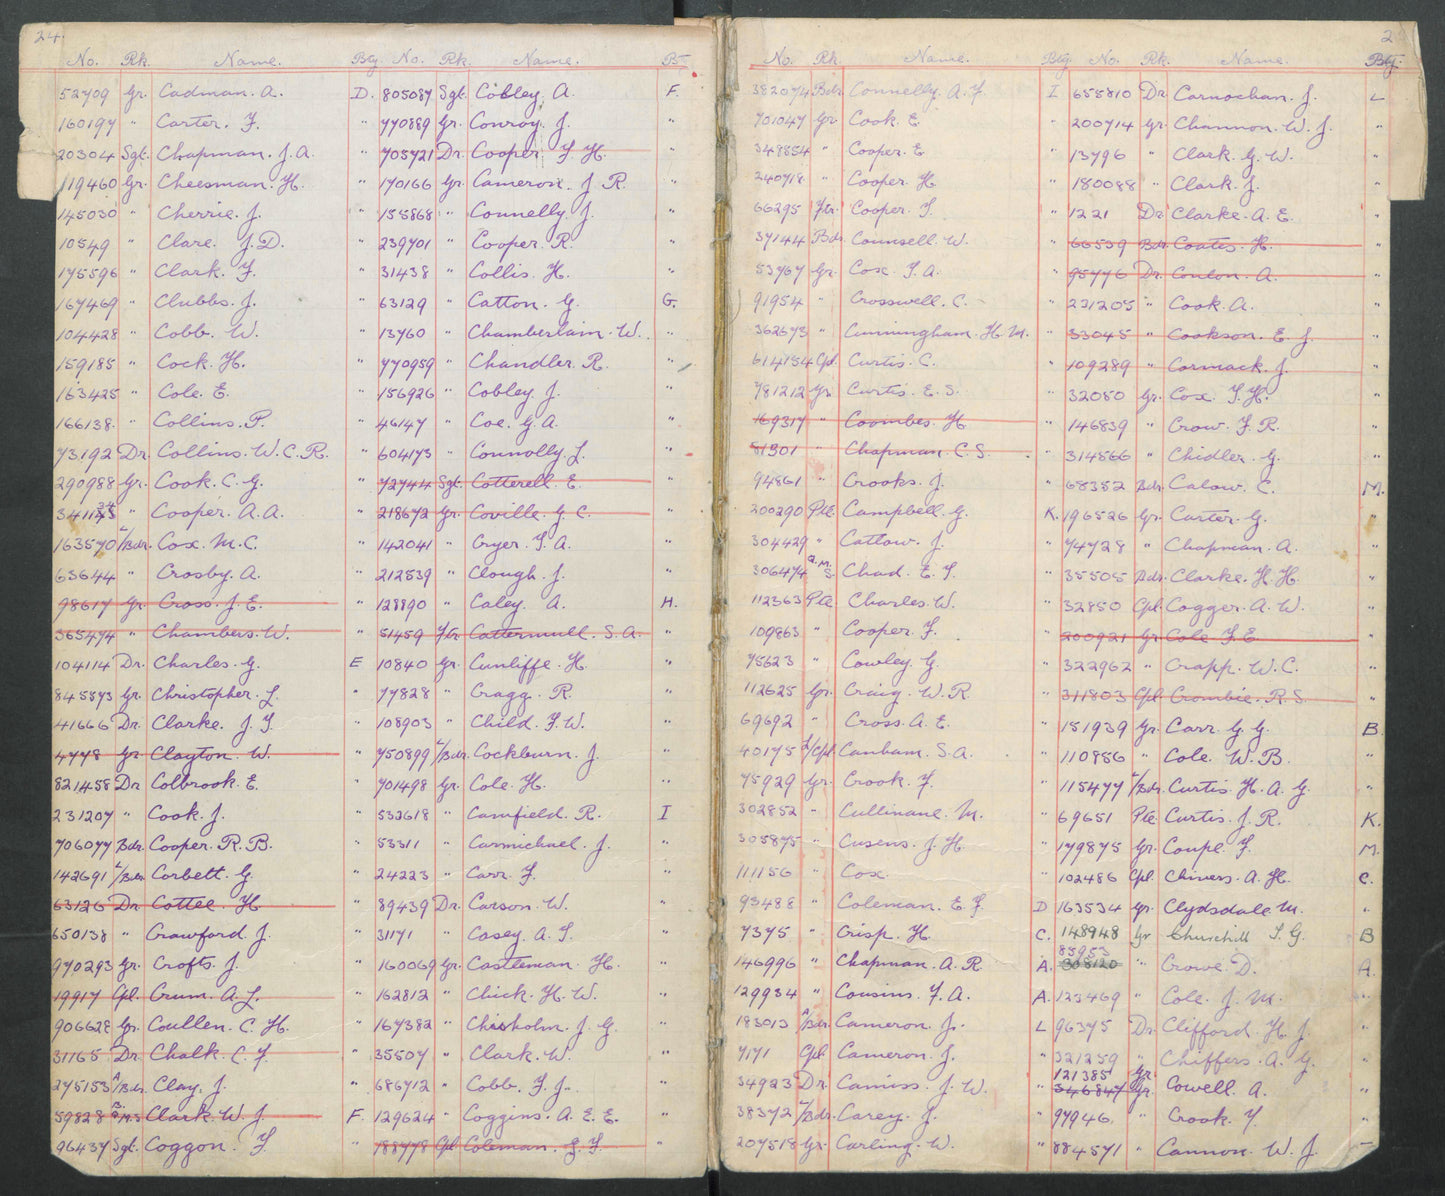 24.
No. Rk. Name. Bty
52709 Gr. Cadman. A. D.
160197 " Carter. F. "
20304 Sgt. Chapman. J. A. "
119460 Gr. Cheesman. H. "
145030 " Cherrie. J. "
10549 " Clare. J. D. "
175596 " Clark. F. "
167469 " Clubbs. J. "
104428 " Cobb. W. "
159185 " Cock. H. "
163425 " Cole. E. "
166138 " Collins. P. "
73192 Dr. Collins. W. C. R. "
290988 Gr. Cook. C. G. "
" Cooper. A. A. "
163570 L/Bdr. Cox. M. C. "
63644 " Crosby. A. "
98617 Gr. Cross. J. E. "
365474 " Chambers. W. "
104114 Dr. Charles. G. E
845873 Gr. Christopher. L. "
41666 Dr. Clarke. J. S. "
4778 Gr. Clayton. W. "
821458 Dr. Colbrook. E. "
231207 " Cook. J. "
706077 Bdr. Cooper. R. B. "
142691 L/Bdr. Corbett. G. "
63126 Dr. Cottee. H "
650138 " Crawford. J. "
970293 Gr. Crofts. J. "
19917 Cpl. Crum. A. L. "
906628 Gr. Coullen. C. H. "
31165 Dr. Chalk. C. F. "
275153 A/Bdr. Clay. J. "
59828 Clark. W. J. F.
96437 Sgt. Coggon. F. "
No. Rk. Name. Bt.
805087 Sgt. Cobley. A. F.
770889 Gr. Conroy. J. "
705721 Dr. Cooper. F. H. "
170166 Gr. Cameron. J. R. "
155868 " Connelly. J. "
239701 " Cooper. R. "
31438 " Collis. H. "
63129 " Catton. G. G.
13760 " Chamberlain. W. "
770959 " Chandler. R. "
156926 " Cobley. J. "
46147 " Coe. G. A. "
604173 " Connolly. L. "
72744 Sgt. Cotterell. E. "
218672 Gr. Coville. G. C. "
142041 " Cryer. S. A. "
212839 " Clough. J. "
128890 " Caley. A. H.
51459 Ftr. Cattermull. S. A. "
10840 Gr. Cunliffe. H. "
77828 " Cragg. R. "
108903 " Child. F. W. "
750899 L/Bdr. Cockburn. J. "
701498 Gr. Cole. H. "
532618 " Camfield. R. I
53311 " Carmichael. J. "
24223 " Carr. F. "
89439 Dr. Carson. W. "
31171 " Casey. A. S. "
160069 Gr. Castleman. H. "
162812 " Chick. H. W. "
167382 " Chisholm. J. G. "
35507 " Clark. W. "
686712 " Cobb. F. J. "
129624 " Coggins. A. E. E. "
188778 Cpl Coleman. G. F. "
2
No. Rk. Name. Bty
382074 Bdr. Connelly. A. F. I
701047 Gr. Cook. E. "
348854 " Cooper. E. "
240718 " Cooper. H. "
66295 Ftr. Cooper. S. "
37144 Bdr. Counsell. W. "
53767 Gr. Cox. S. A. "
91954 " Crosswell. C. "
362673 " Cunningham. H. M. "
614154 Cpl. Curtis. C. "
781212 Gr. Curtis. E. S. "
169317 " Coombes. H
51301 " Chapman. C. S.
94861 " Crooks. J. "
200290 Pte. Campbell. G. K.
304429 " Catlow. J. "
306474 Q.M.S. Chad. E. S. "
112363 Pte. Charles. W. "
109863 " Cooper. F. "
75623 " Cowley. G "
112625 Gr. Craig. W. R "
69692 " Cross. A. E. "
40175 L/Cpl. Canham. S. A. "
75929 Gr. Crook. F. "
302852 " Cullinane. M. "
305875 " Cusens. J. H "
111156 " Cox. "
93488 " Coleman. E. F. D
7375 " Crisp. H. C.
146996 " Chapman. A. R. A.
129934 " Cousins. F. A. A.
183013 A/Bdr. Cameron. J. L
7171 Cpl Cameron. J. "
34923 Dr. Camiss. J. W. "
38372 L/Bdr. Carey. J. "
207518 Gr. Carling. W. "
No. Rk. Name. Bty.
655810 Dr Carnochan. J. L
200714 Gr. Channon. W. J. "
13796 " Clark. G. W. "
180088 " Clark. J. "
1221 Dr. Clarke. A. E. "
66539 Bdr. Coates. H. "
95776 Dr. Conlon. A. "
221205 " Cook. A. "
33045 " Cookson. E. J. "
109289 " Cormack. J. "
32050 Gr. Cox. S. H. "
146839 " Crow. F. R. "
314866 " Chidler. G. "
68352 Bdr. Calow. C. M.
196526 Gr. Carter. G. "
74728 " Chapman. A. "
35505 Bdr. Clarke. H. H. "
32850 Cpl Cogger. A. W. "
200921 Gr. Cole F. E "
322962 " Crapp. W. C. "
311803 Cpl. Crombie. R. S. "
151939 Gr. Carr. G. G. B.
110856 " Cole. W. B. "
115477 L/Bdr. Curtis. H. A. G. "
69651 Pte. Curtis. J. R. K.
179875 Gr. Coupe. F. M.
102486 Cpl. Chivers. A. H. C.
163534 Gr. Clydsdale. M. "
148948 Gr Churchill S. G. B
83953
308120 " Crowe. D. A.
123469 " Cole. J. M. "
96375 Dr. Clifford. H. J. "
321259 " Chiffers. A. G. "
121385 Gr.
346847 Gr. Cowell. A. "
97946. Crook. Y. "
884571 " Cannon. W. J. "